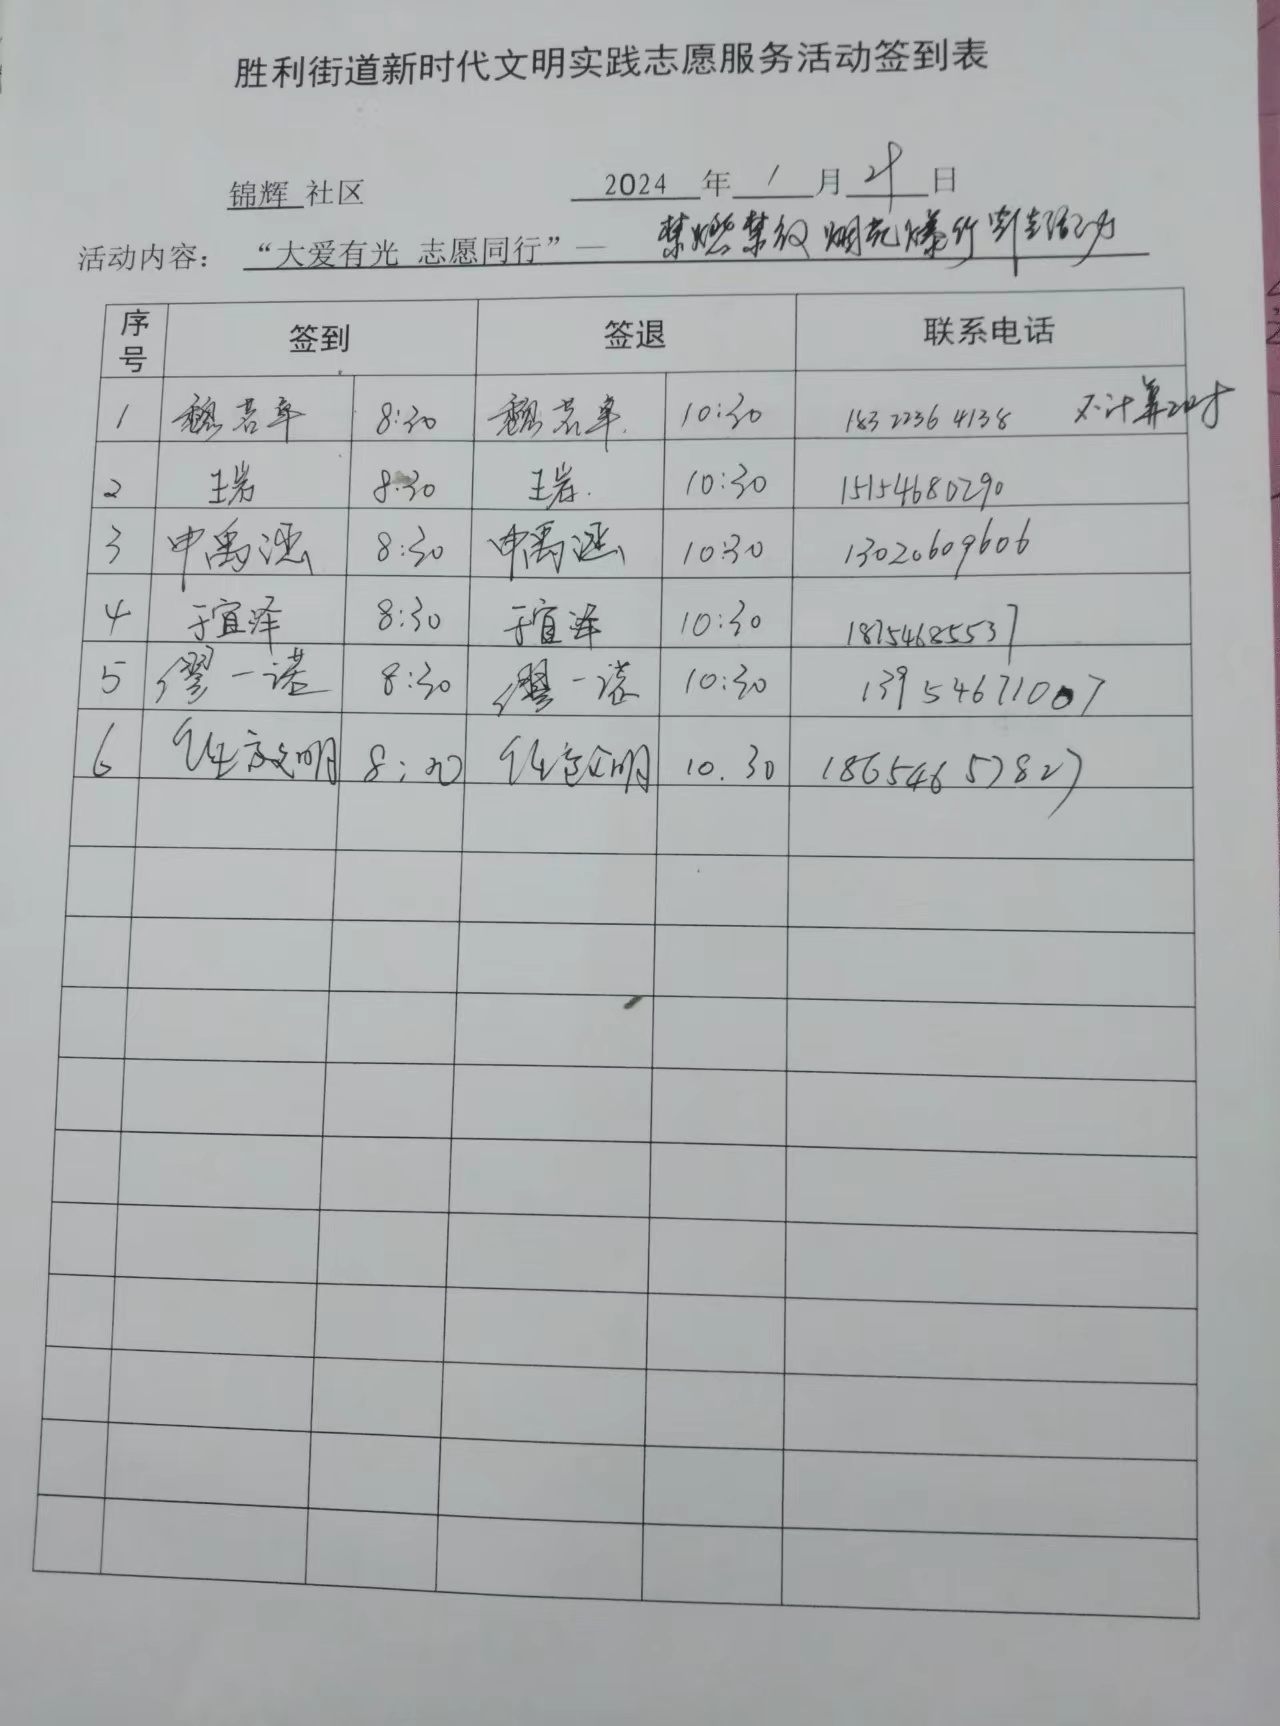 胜利街道新时代文明实践志愿服务活动签到表
锦辉 社区 2024 年 1 月 21 日
活动内容： “大爱有光 志愿同行”— 禁燃禁放烟花爆竹宣传活动
序号 签到 签退 联系电话
1 魏若卓 8:30 魏若卓 10:30 18322364138 不计算工时
2 王岩 8:30 王岩 10:30 15154680290
3 申禹涵 8:30 申禹涵 10:30 13020609606
4 于宜泽 8:30 于宜泽 10:30 18754685537
5 缪一诺 8:30 缪一诺 10:30 13954671007
6 文明 8:30 文明 10.30 18654657827